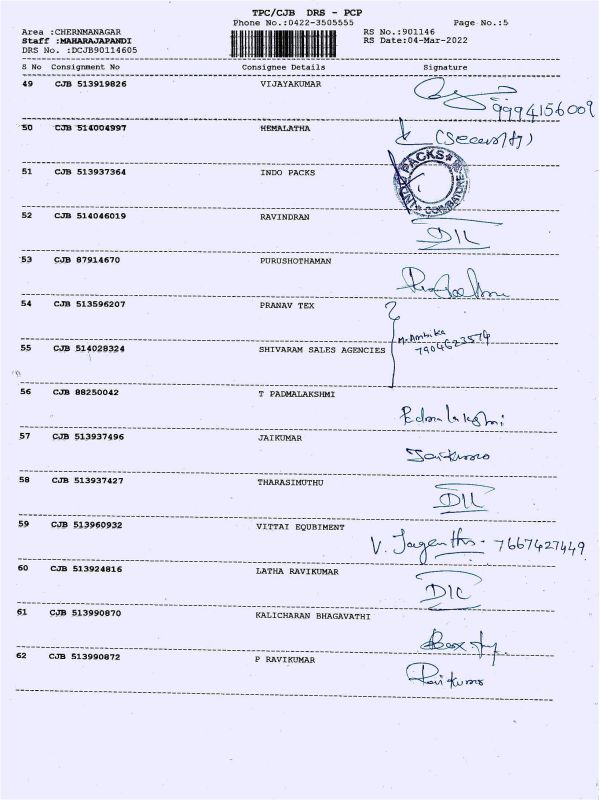 TPC/CJB DRS - PCP
Phone No.:0422-3505555 Page No.:5
Area :CHERNMANAGAR RS No.:901146
Staff :MAHARAJAPANDI RS Date:04-Mar-2022
DRS No. :DCJB90114605
S No Consignment No Consignee Details Signature
49 CJB 513919826 VIJAYAKUMAR
9994156009
50 CJB 514004997 HEMALATHA (Security)
51 CJB 513937364 INDO PACKS INDO PACKS COIMBATORE
52 CJB 514046019 RAVINDRAN DIL
53 CJB 87914670 PURUSHOTHAMAN
54 CJB 513596207 PRANAV TEX
M. Ambika
7904623574
55 CJB 514028324 SHIVARAM SALES AGENCIES
56 CJB 88250042 T PADMALAKSHMI
Padmalakshmi
57 CJB 513937496 JAIKUMAR
Jaikumar
58 CJB 513937427 THARASIMUTHU
DIL
59 CJB 513960932 VITTAI EQUBIMENT
V. 7667427449
60 CJB 513924816 LATHA RAVIKUMAR
DIL
61 CJB 513990870 KALICHARAN BHAGAVATHI
62 CJB 513990872 P RAVIKUMAR
Ravikumar